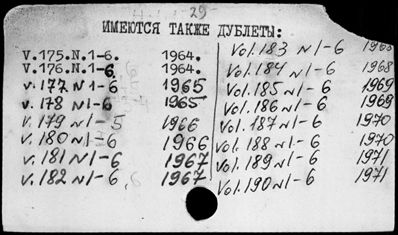 -29-
ИМЕЮТСЯ ТАКЖЕ ДУБЛЕТЫ:
V.175.N.1-6. 1964.
V.176.N.1-6. 1964.
v. 177 N1-6 1965
v. 178 N1-6 1965
v. 179 N1-5 1966
v. 180 N1-6 1966
v. 181 N1-6 1967
v. 182 N1-6 1967
Vol. 183 N1-6 1968
Vol. 184 N1-6 1968
Vol. 185 N1-6 1969
Vol. 186 N1-6 1969
Vol. 187 N1-6 1970
Vol. 188 N1-6 1970
Vol. 189 N1-6 1971
Vol. 190 N1-6 1971